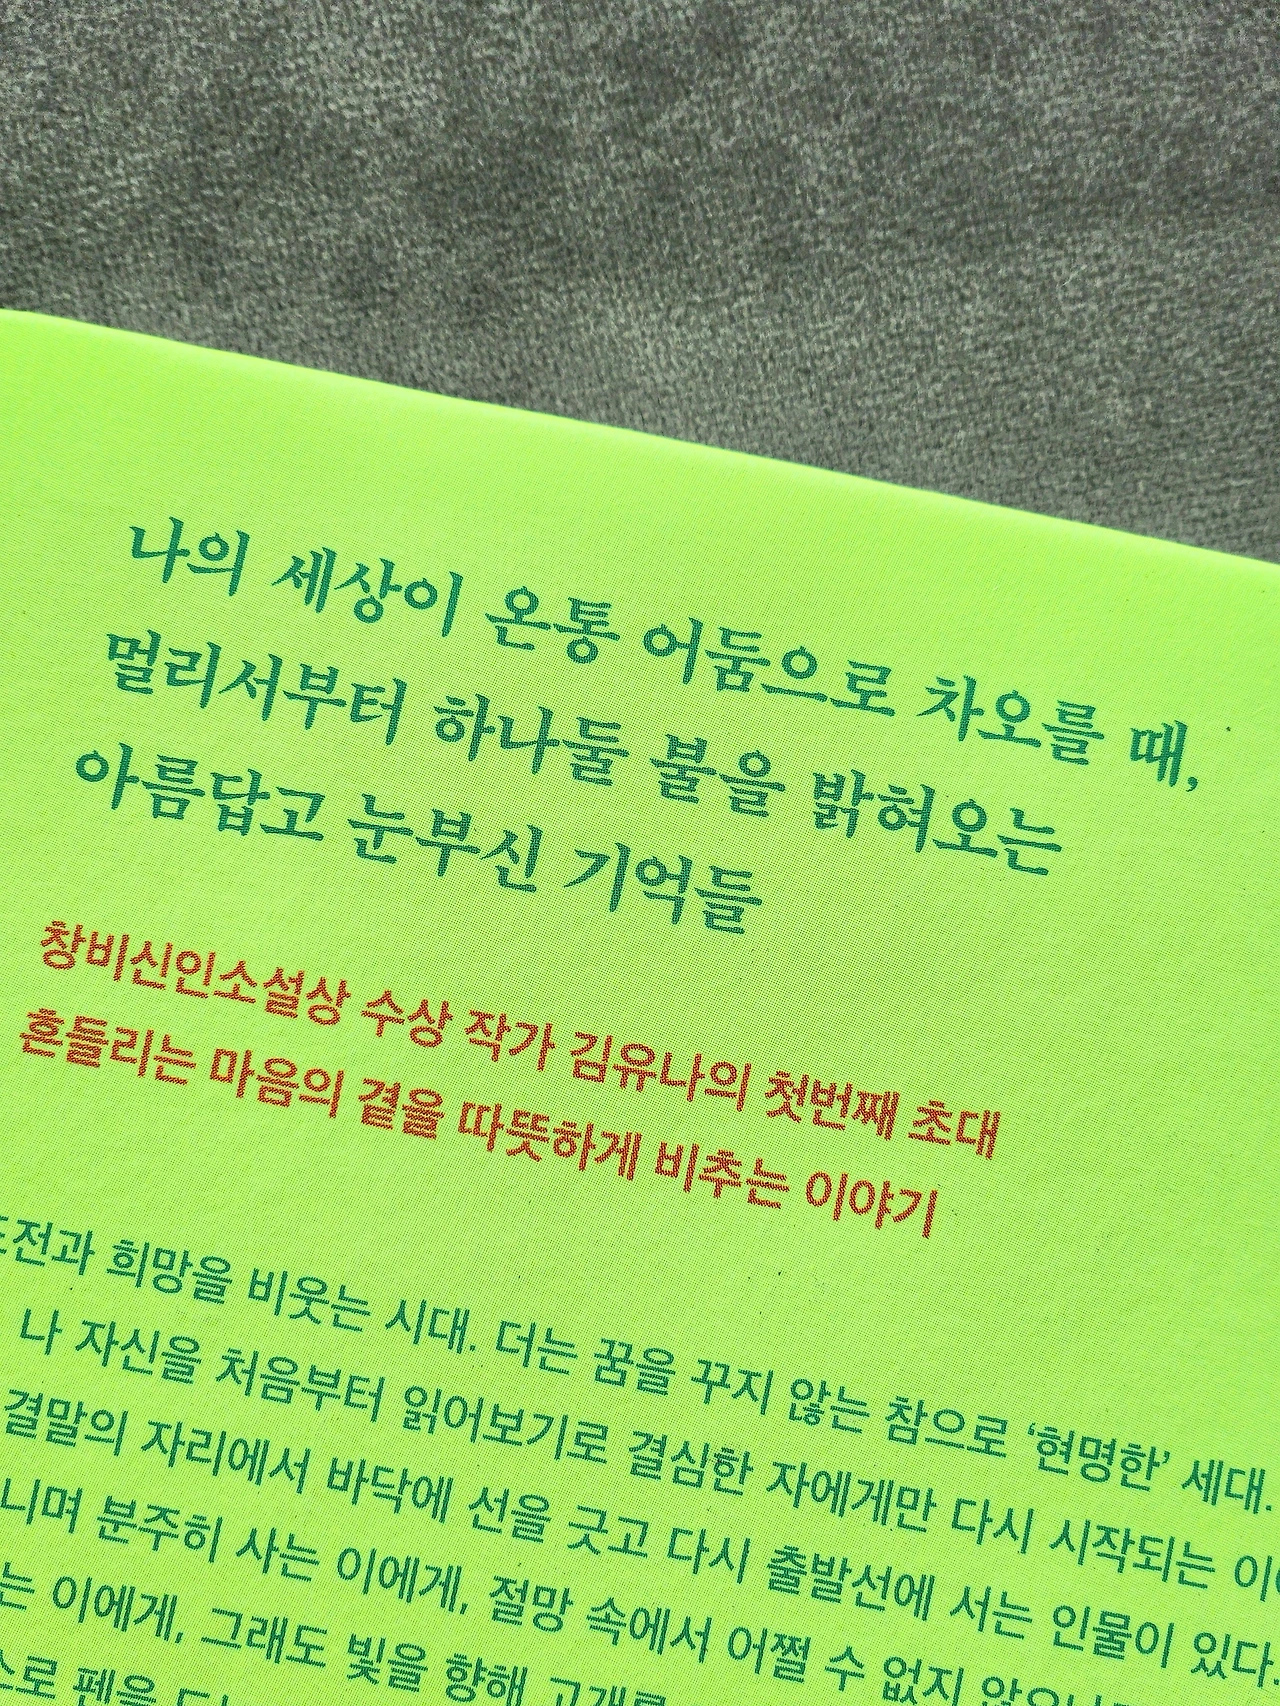 나의 세상이 온통 어둠으로 차오를 때,
멀리서부터 하나둘 불을 밝혀오는
아름답고 눈부신 기억들
창비신인소설상 수상 작가 김유나의 첫번째 초대
흔들리는 마음의 곁을 따뜻하게 비추는 이야기
희망을 비웃는 시대. 더는 꿈을 꾸지 않는 참으로 ‘현명한’ 세대.
나 자신을 처음부터 읽어보기로 결심한 자에게만 다시 시작되는
결말의 자리에서 바닥에 선을 긋고 다시 출발선에 서는 인물이 있다.
니며 분주히 사는 이에게, 절망 속에서 어쩔 수 없지
는 이에게, 그래도 빛을 향해
펜을